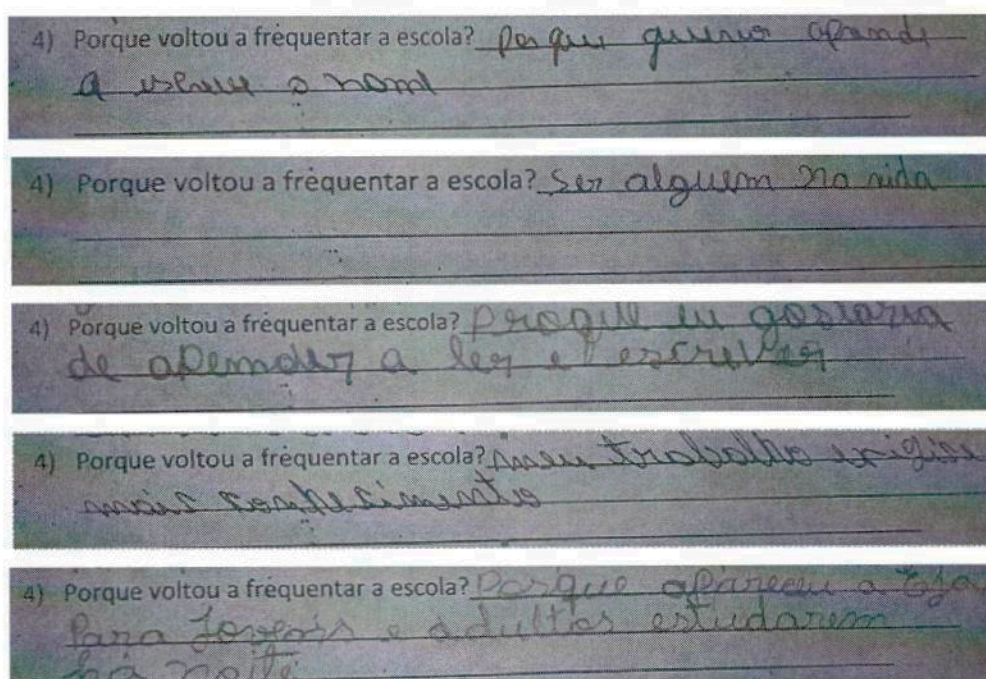 4) Porque voltou a frequentar a escola? Por que quero aprende
a escreve o nome
4) Porque voltou a frequentar a escola? Ser alguem na vida
4) Porque voltou a frequentar a escola? Proque eu gostaria
de apemder a ler e escrever
4) Porque voltou a frequentar a escola? meu trabalho exigiu
mais conhecimento
4) Porque voltou a frequentar a escola? Porque apareceu a EJA
Para Jovens e adultos estudarem
ha noite